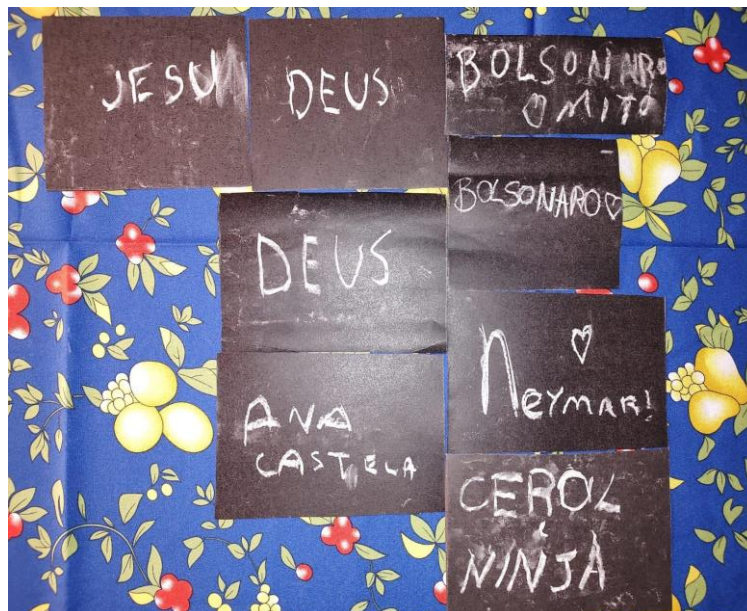 JESUS
DEUS
BOLSONARO
OMITO
BOLSONARO♡
DEUS
♡
NEYMAR!
ANA
CASTELA
CEROL
NINJA